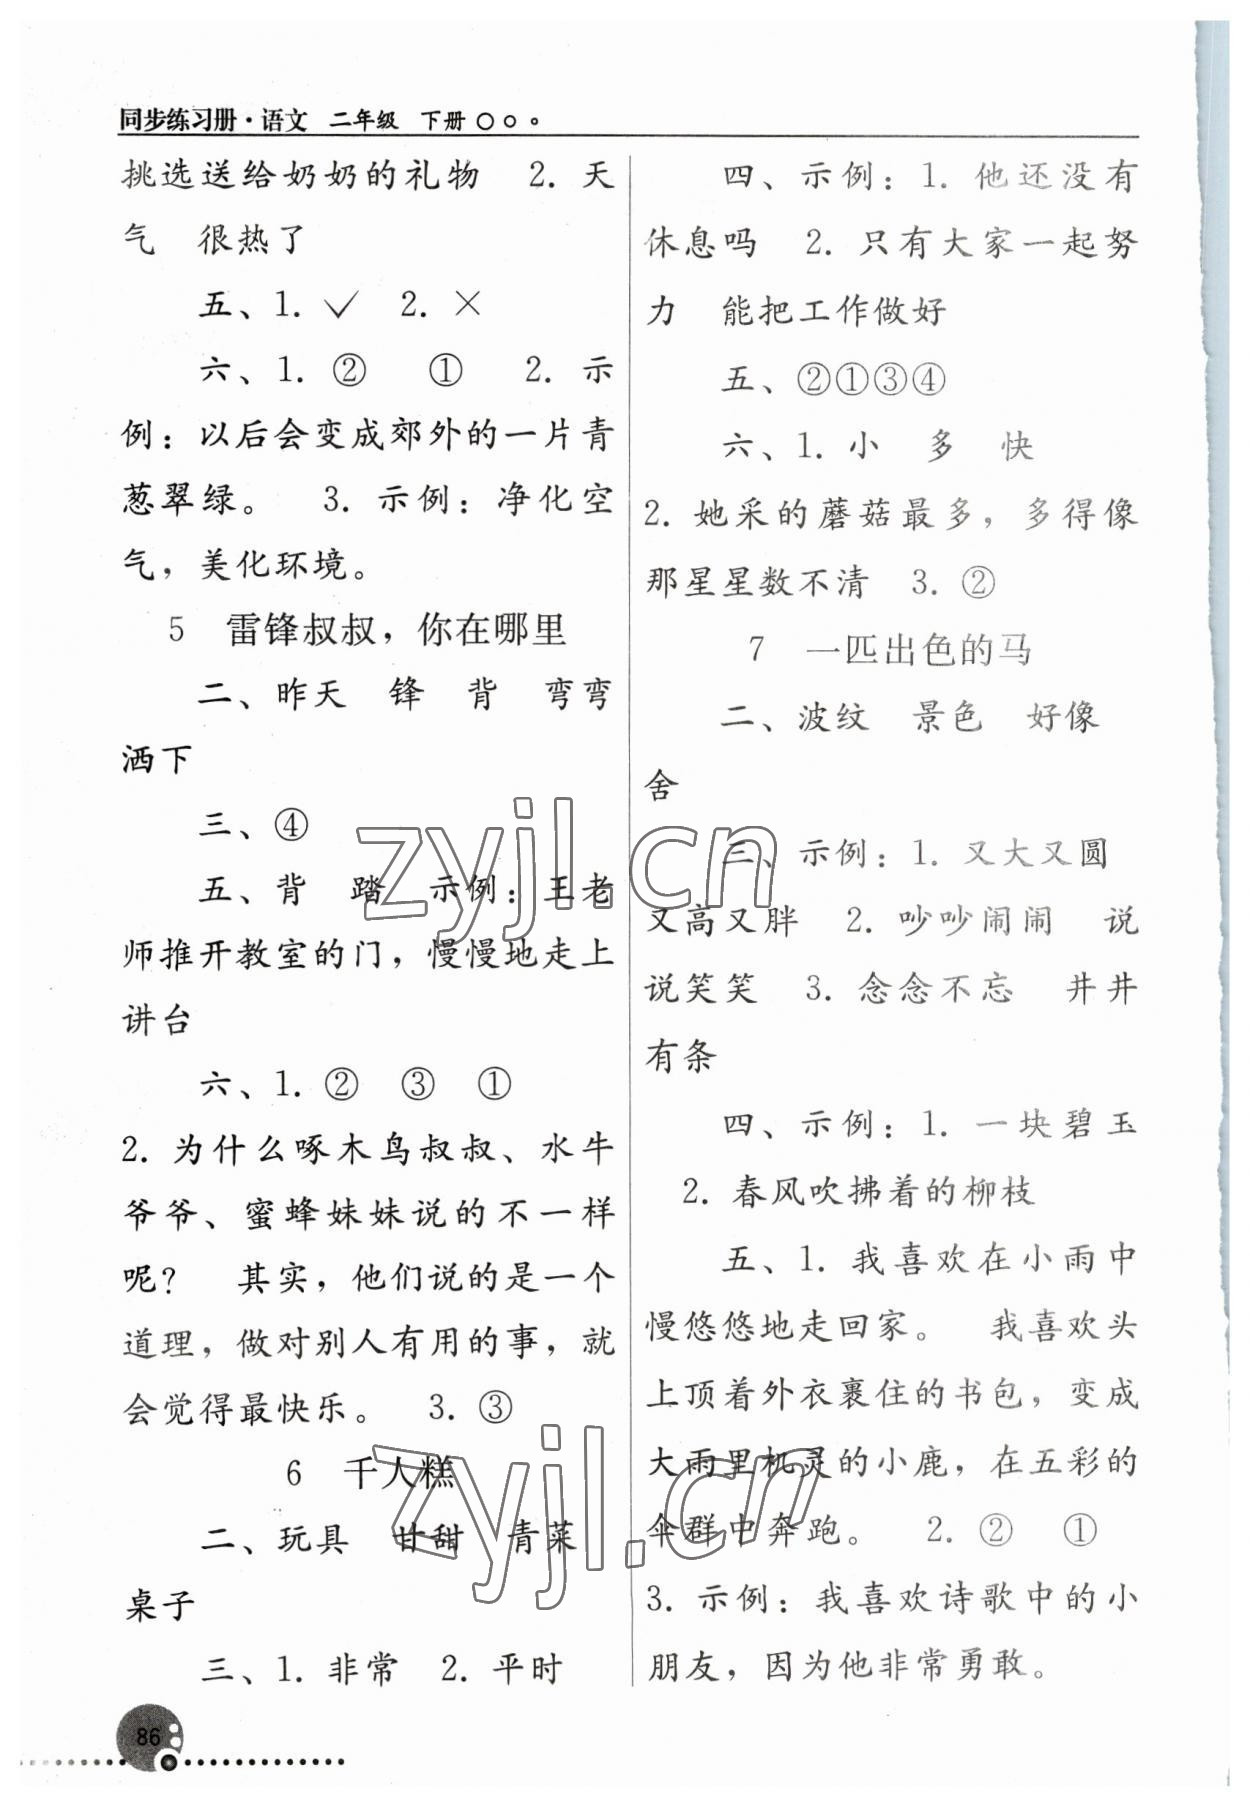 同步练习册·语文 二年级 下册
挑选送给奶奶的礼物 2. 天
气 很热了
五、1. ✓ 2. ×
六、1. ② ① 2. 示
例：以后会变成郊外的一片青
葱翠绿。 3. 示例：净化空
气，美化环境。
5 雷锋叔叔，你在哪里
二、昨天 锋 背 弯弯
洒下
三、④
五、背 踏 示例：王老
师推开教室的门，慢慢地走上
讲台
六、1. ② ③ ①
2. 为什么啄木鸟叔叔、水牛
爷爷、蜜蜂妹妹说的不一样
呢？ 其实，他们说的是一个
道理，做对别人有用的事，就
会觉得最快乐。 3. ③
6 千人糕
二、玩具 甘甜 青菜
桌子
三、1. 非常 2. 平时
四、示例：1. 他还没有
休息吗 2. 只有大家一起努
力 能把工作做好
五、②①③④
六、1. 小 多 快
2. 她采的蘑菇最多，多得像
那星星数不清 3. ②
7 一匹出色的马
二、波纹 景色 好像
舍
三、示例：1. 又大又圆
又高又胖 2. 吵吵闹闹 说
说笑笑 3. 念念不忘 井井
有条
四、示例：1. 一块碧玉
2. 春风吹拂着的柳枝
五、1. 我喜欢在小雨中
慢悠悠地走回家。 我喜欢头
上顶着外衣裹住的书包，变成
大雨里机灵的小鹿，在五彩的
伞群中奔跑。 2. ② ①
3. 示例：我喜欢诗歌中的小
朋友，因为他非常勇敢。
zyjl.cn
zyjl.cn
86